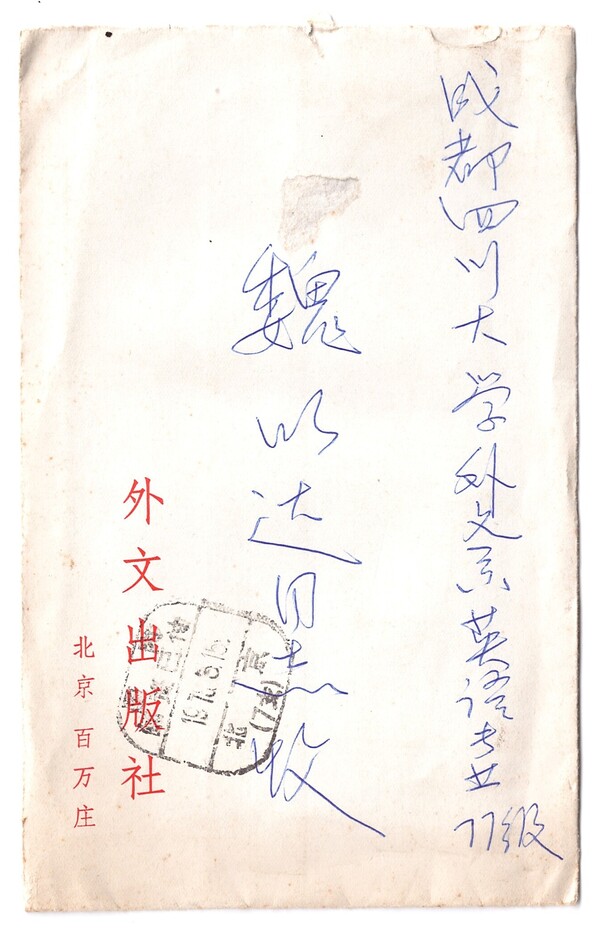 成都四川大学外文系英语专业77级
魏以达同志收
外文出版社
北京百万庄
北京